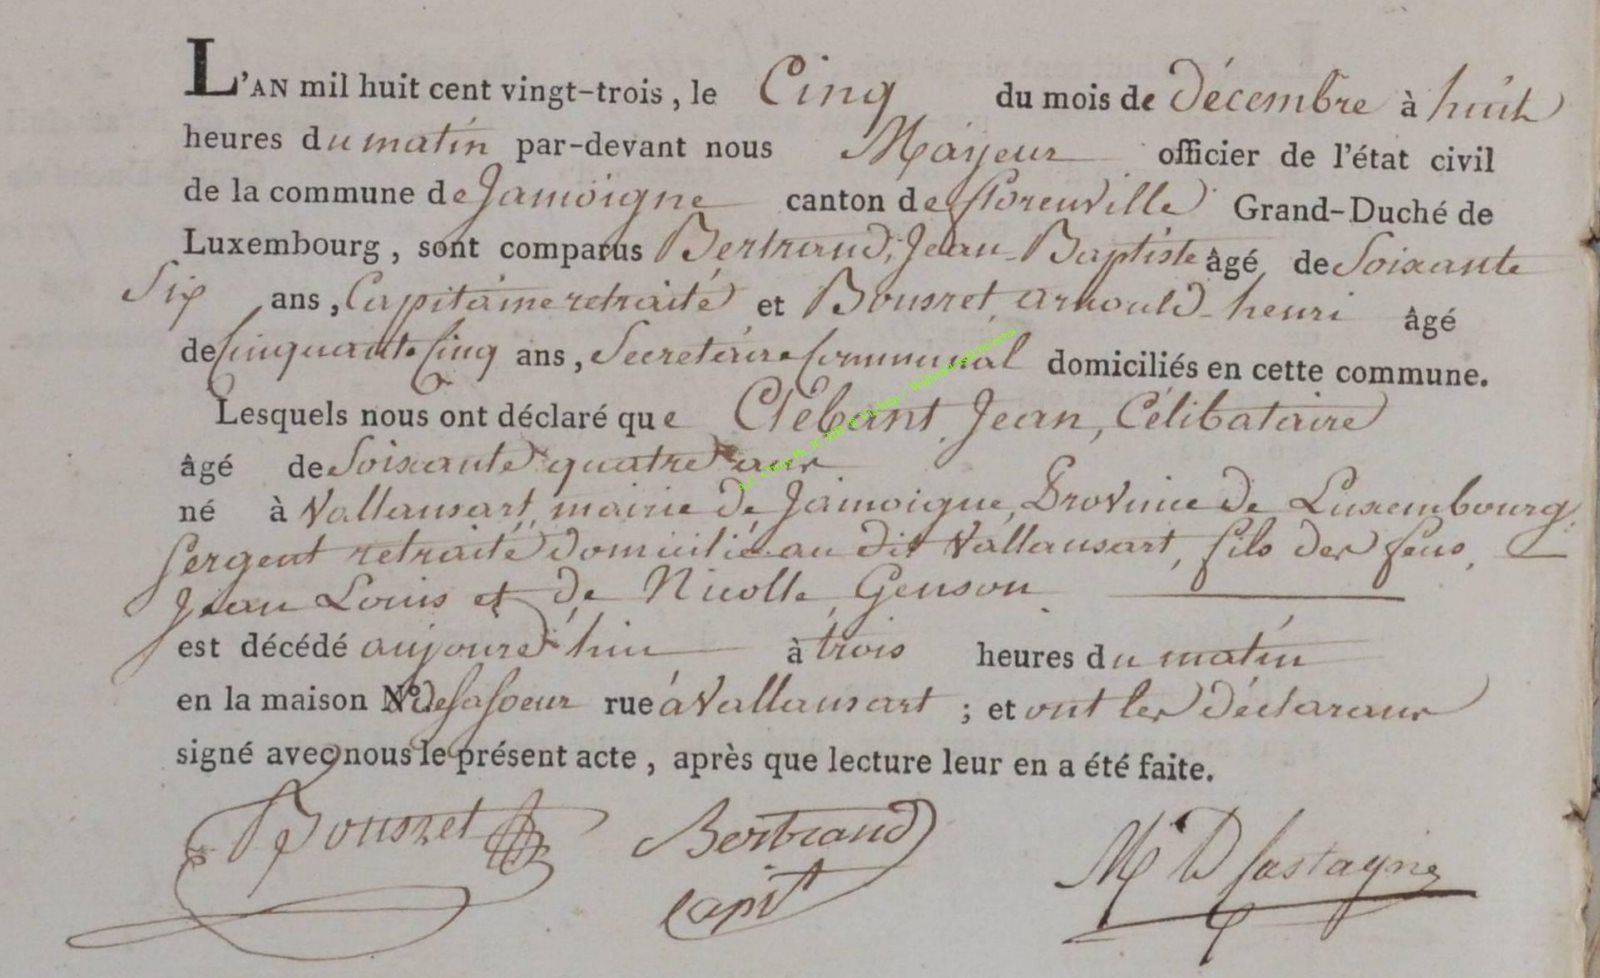 L'AN mil huit cent vingt-trois, le Cinq du mois de décembre à huit
heures du matin par-devant nous Mayeur officier de l'état civil
de la commune de Jamoigne canton de florenville Grand-Duché de
Luxembourg, sont comparus Bertrand, Jean-Baptiste âgé de Soixante
Six ans, Capitaine retraité et Bousret, arnould-henri âgé
de Cinquante Cinq ans, Secretaire Communal domiciliés en cette commune.
Lesquels nous ont déclaré que Clébant, Jean, Célibataire
âgé de Soixante quatre ans
né à Vallansart, mairie de Jamoigne, Province de Luxembourg,
Sergent retraité domicilié au dit Vallansart, fils des feus,
Jean Louis et de Nicolle Genson
est décédé aujourd'hui à trois heures du matin
en la maison No. de sa soeur rue à Vallansart ; et ont les déclarans
signé avec nous le présent acte, après que lecture leur en a été faite.
Bousret Bertrand
capit